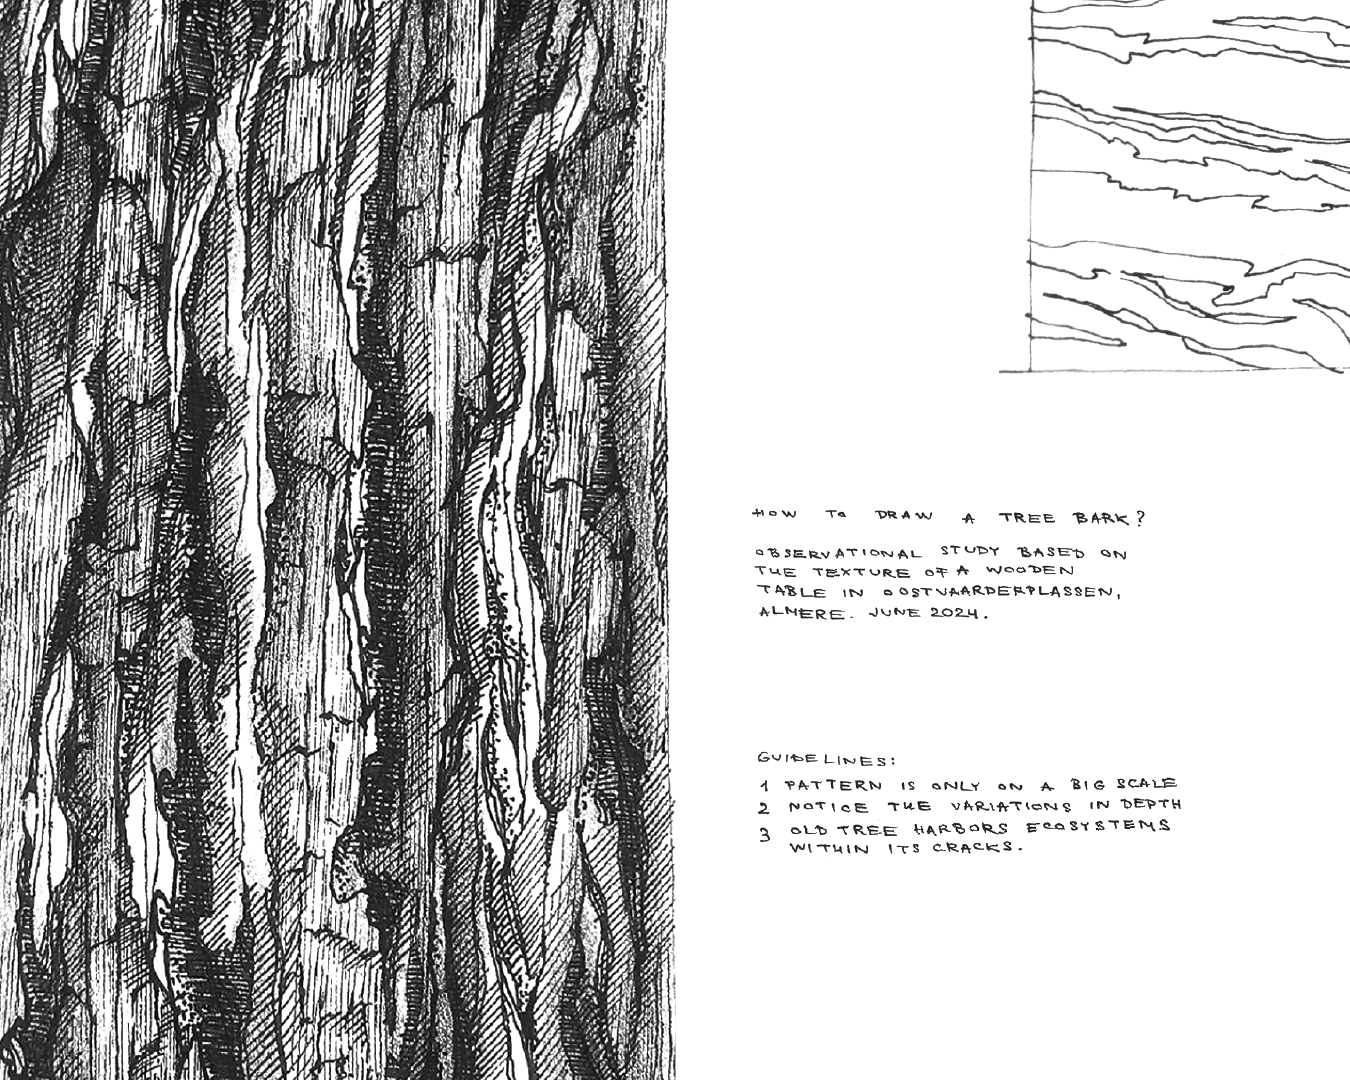 HOW TO DRAW A TREE BARK?
OBSERVATIONAL STUDY BASED ON
THE TEXTURE OF A WOODEN
TABLE IN OOSTVAARDERPLASSEN,
ALMERE. JUNE 2024.
GUIDELINES:
1 PATTERN IS ONLY ON A BIG SCALE
2 NOTICE THE VARIATIONS IN DEPTH
3 OLD TREE HARBORS ECOSYSTEMS
WITHIN ITS CRACKS.